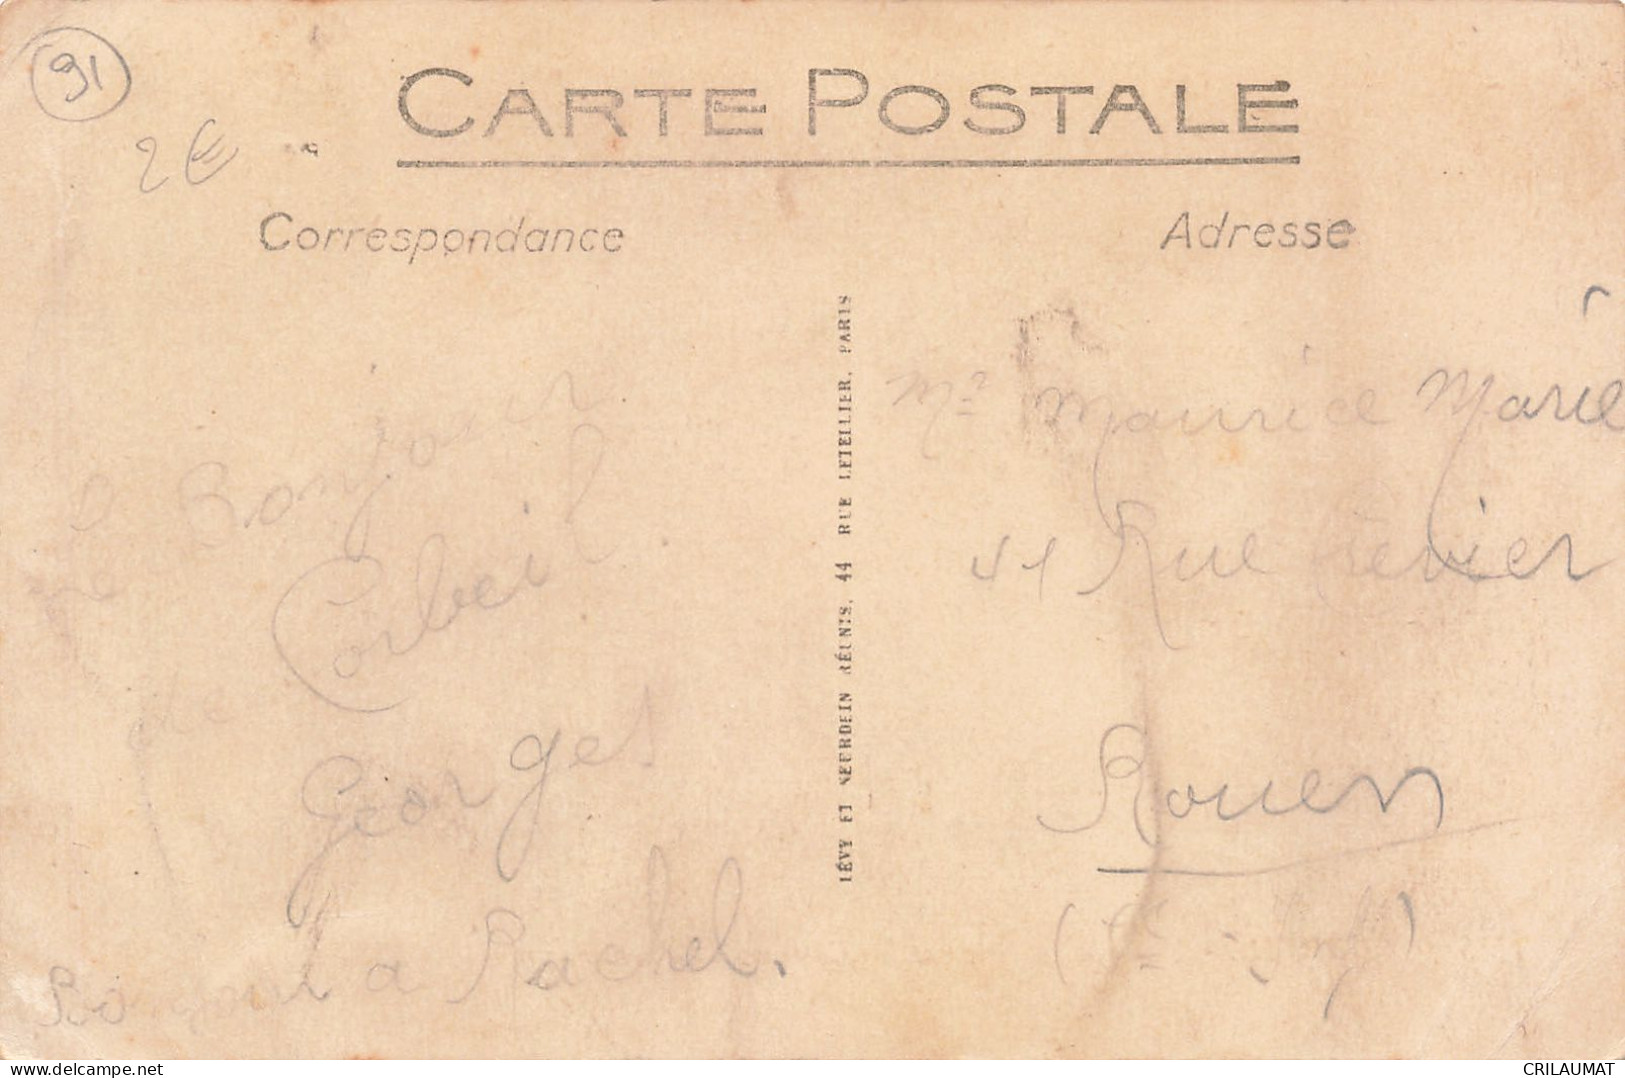 91
2€
CARTE POSTALE
Correspondance
Adresse
Bonjour
de Corbeil
Georges
Bonjour a Rachel.
LÉVY ET NEURDEIN RÉUNIS, 44 RUE LETELLIER, PARIS
Mr Maurice Marie
41 Rue
Rouen
(Sne - Inf)
delcampe.net
CRILAUMAT